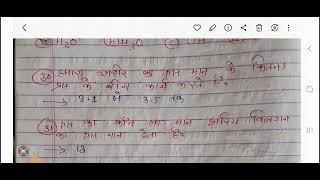 (a) H₂O (b) H₃O (c)
30) हमारा शरीर का pH मान के कितना
pH के बीच कार्य करता है?
→ 2.1 से 3.5 तक
31) pH का कौन सा मान क्षारिय विलयन
का pH मान देता है?
→ 13